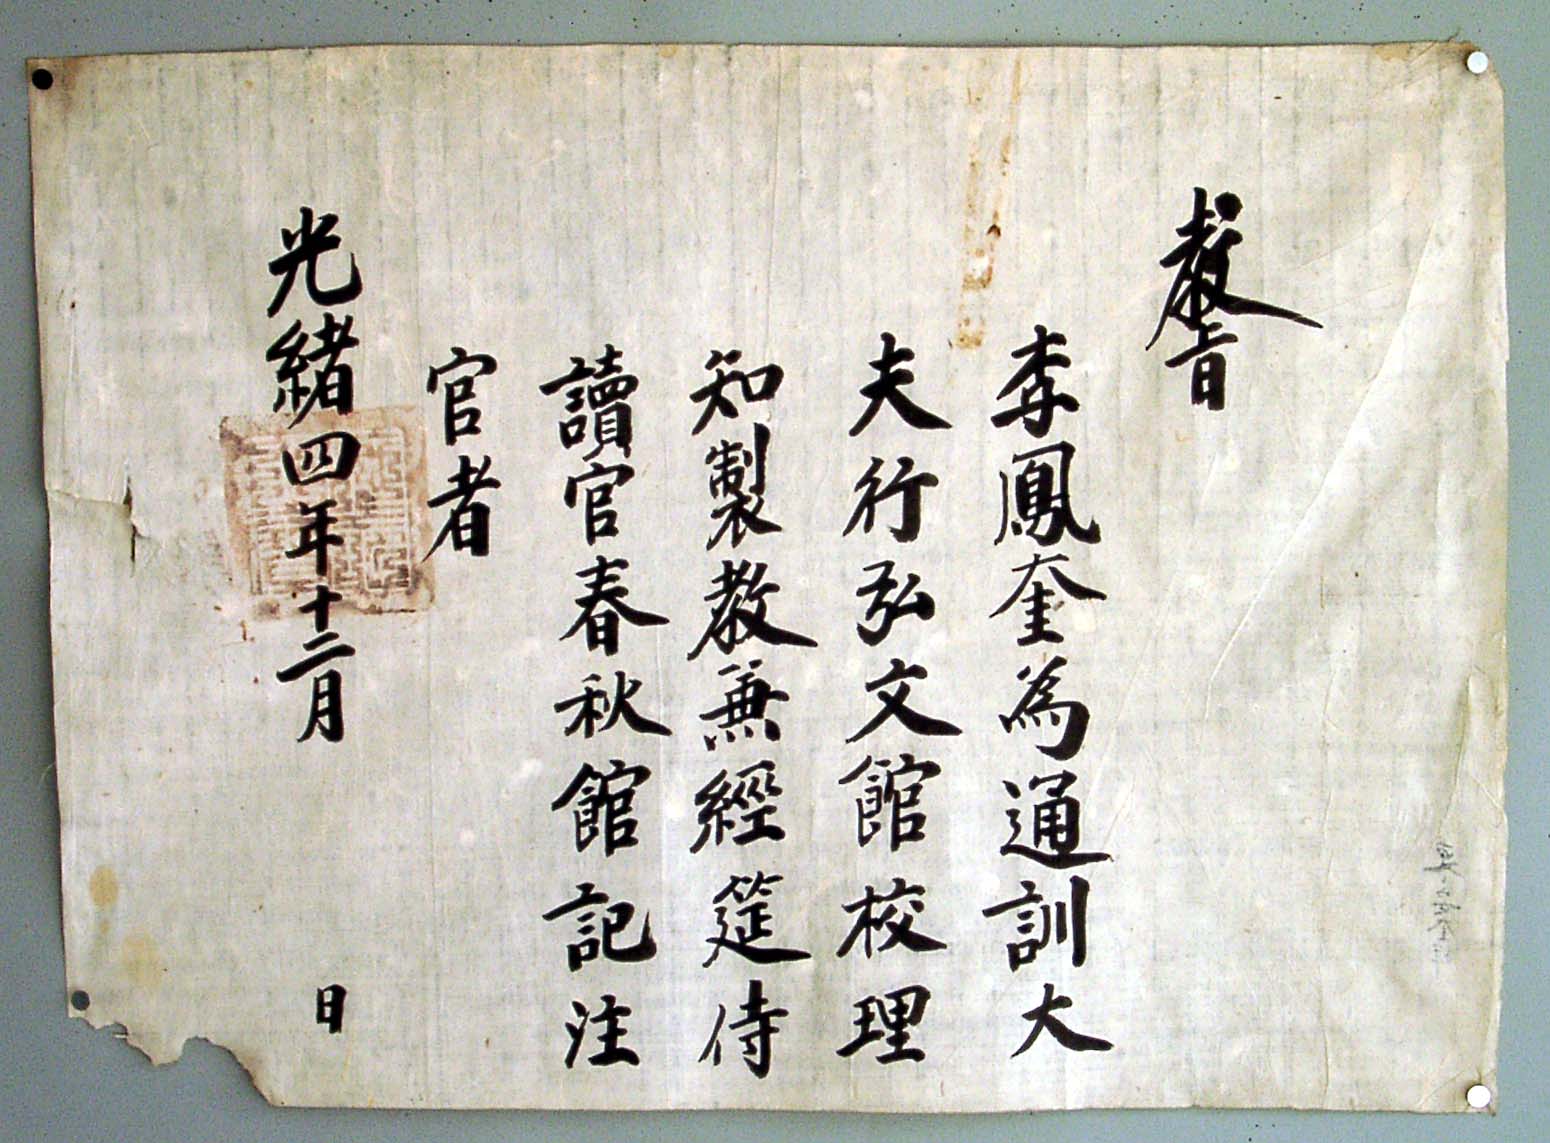 教旨
李鳳奎為通訓大
夫行弘文館校理
知製教兼經筵侍
讀官春秋館記注
官者
光緒四年十二月 日